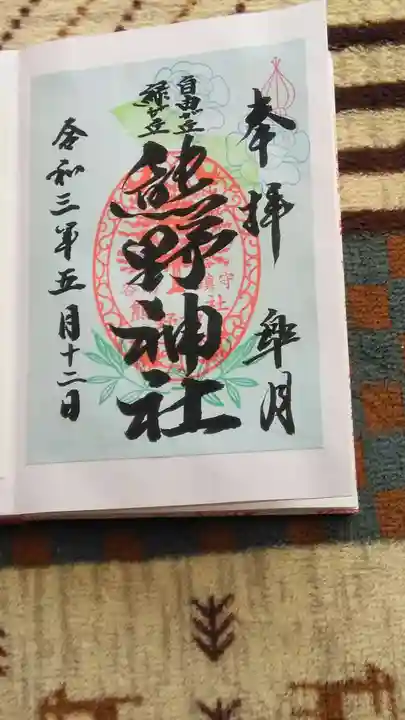 奉拝 皐月
自由が丘
緑が丘
熊野神社
令和三年五月十二日